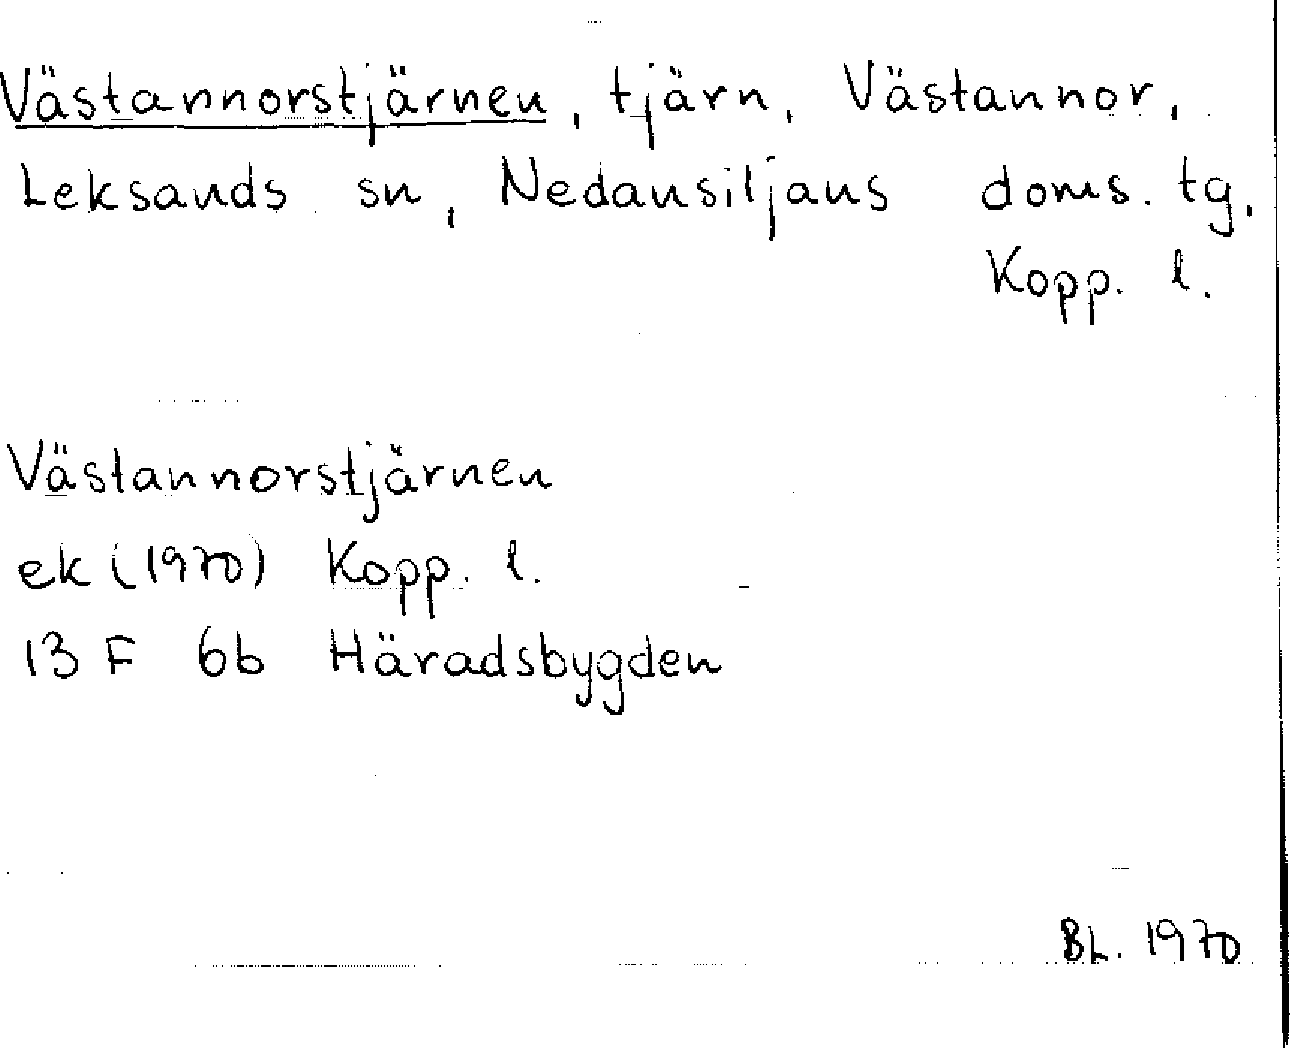 Västannorstjärnen, tjärn, Västannor,
Leksands sn, Nedansiljans doms. tg,
Kopp. l.
Västannorstjärnen
ek (1970) Kopp. l.
13 F 6b Häradsbygden
BL. 1970